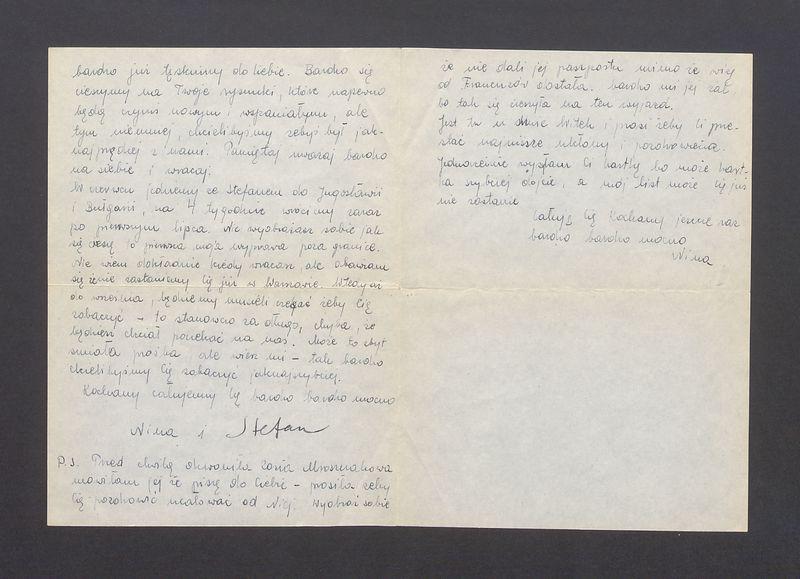 bardzo już tęsknimy do Ciebie. Bardzo się
cieszymy na Twoje rysunki, które napewno
będą czymś nowym i wspaniałym, ale
tym niemniej, chcielibyśmy żebyś był jak-
najprędzej z nami. Pamiętaj uważaj bardzo
na siebie i wracaj.
W czerwcu jedziemy ze Stefanem do Jugosławii
i Bułgarii, na 4 tygodnie wrócimy zaraz
po pierwszym lipca. Nie wyobrażasz sobie jak
się cieszę, to pierwsza moja wyprawa poza granicę.
Nie wiem dokładnie kiedy wracasz, ale obawiam
się że nie zastaniemy Cię już w Warszawie. Wtedy aż
do września, będziemy musieli czekać żeby Cię
zobaczyć – to stanowczo za długo, chyba, że
będziesz chciał poczekać na nas. Może to zbyt
śmiała prośba, ale wiesz mi – tak bardzo
chcielibyśmy Cię zobaczyć jaknajszybciej.
Kochamy całujemy Cię bardzo bardzo mocno
Nina i Stefan
P.S. Przed chwilą dzwoniła Zosia
mówiłam jej że piszę do Ciebie – prosiła żeby
Cię pozdrowić ucałować od Niej. Wyobraź sobie
że nie dali jej paszportu mimo że wizę
od Francuzów dostała. bardzo mi jej żal,
bo tak się cieszyła na ten wyjazd.
Jest tu u mnie Witek i prosi żeby Ci prze-
słać najniższe ukłony i pozdrowienia.
Jednocześnie wysłam Ci kartkę bo może kart-
ka szybciej dojdzie, a mój list może Cię już
nie zastanie
Całuję Cię Kochany jeszcze raz
bardzo bardzo mocno
Nina